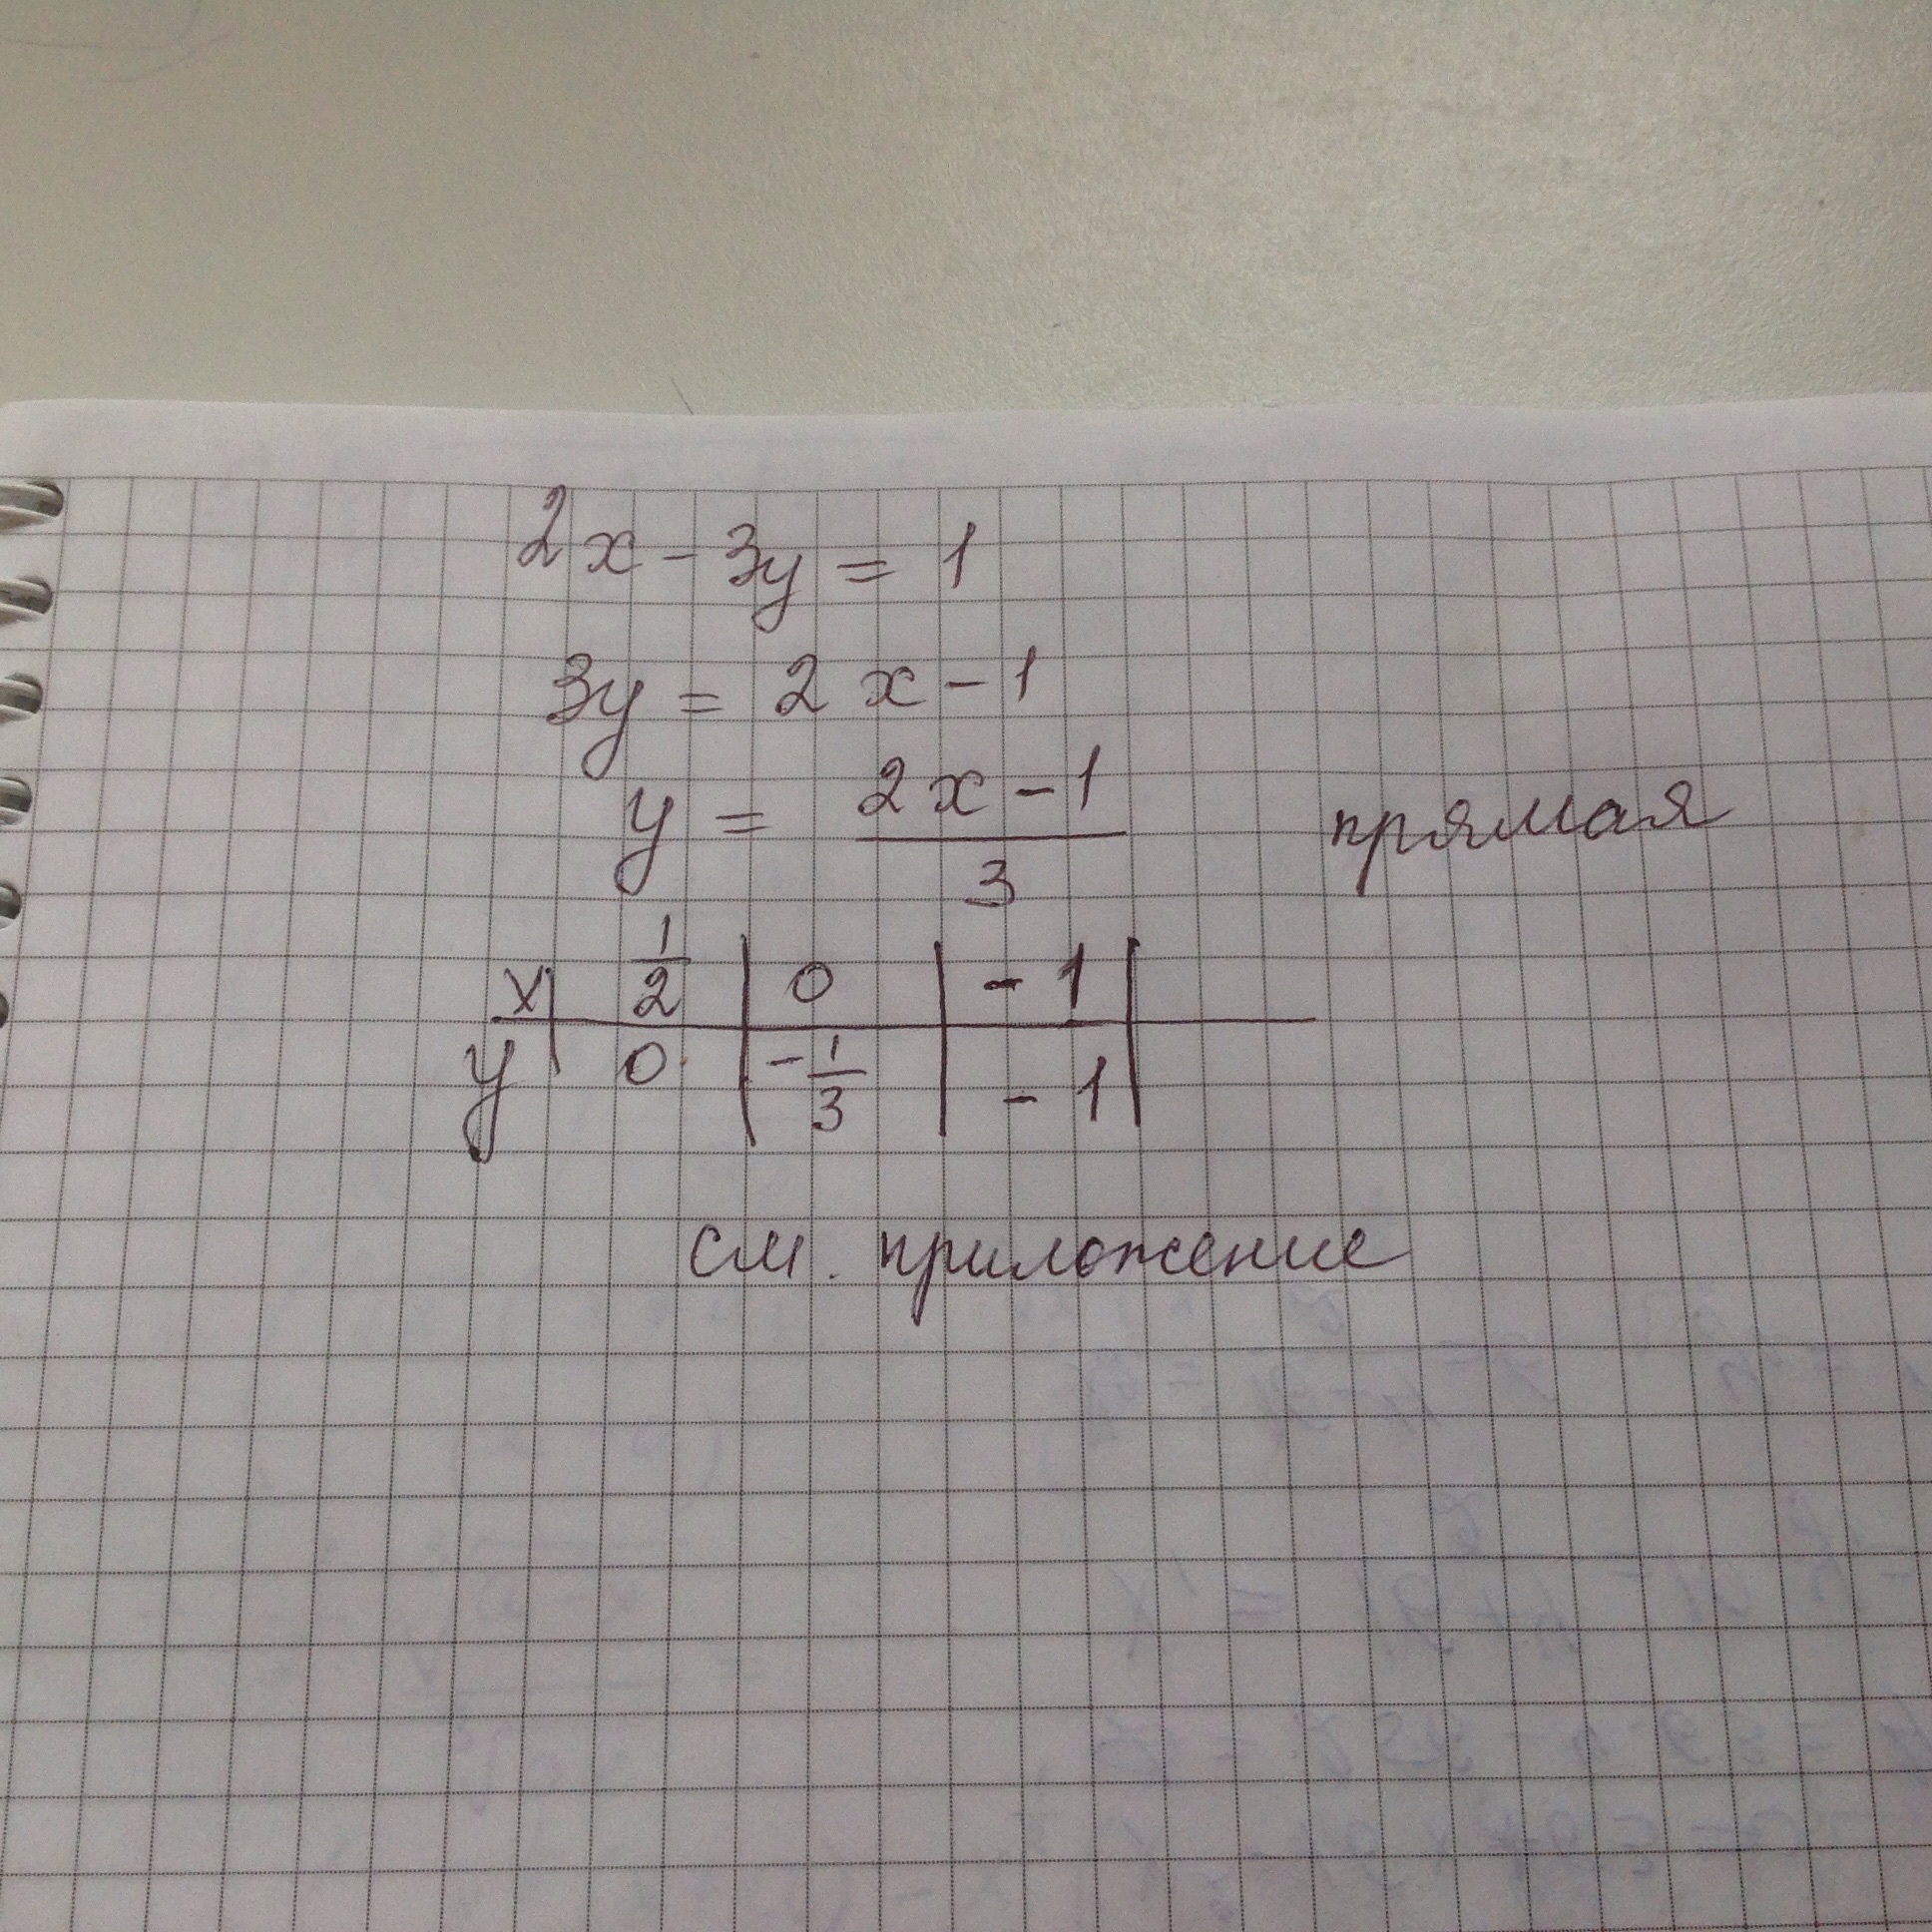 2x - 3y = 1
3y = 2x - 1
y = (2x - 1)/3 прямая
x | 1/2 | 0 | - 1 |
y | 0 | - 1/3 | - 1 |
см. приложение